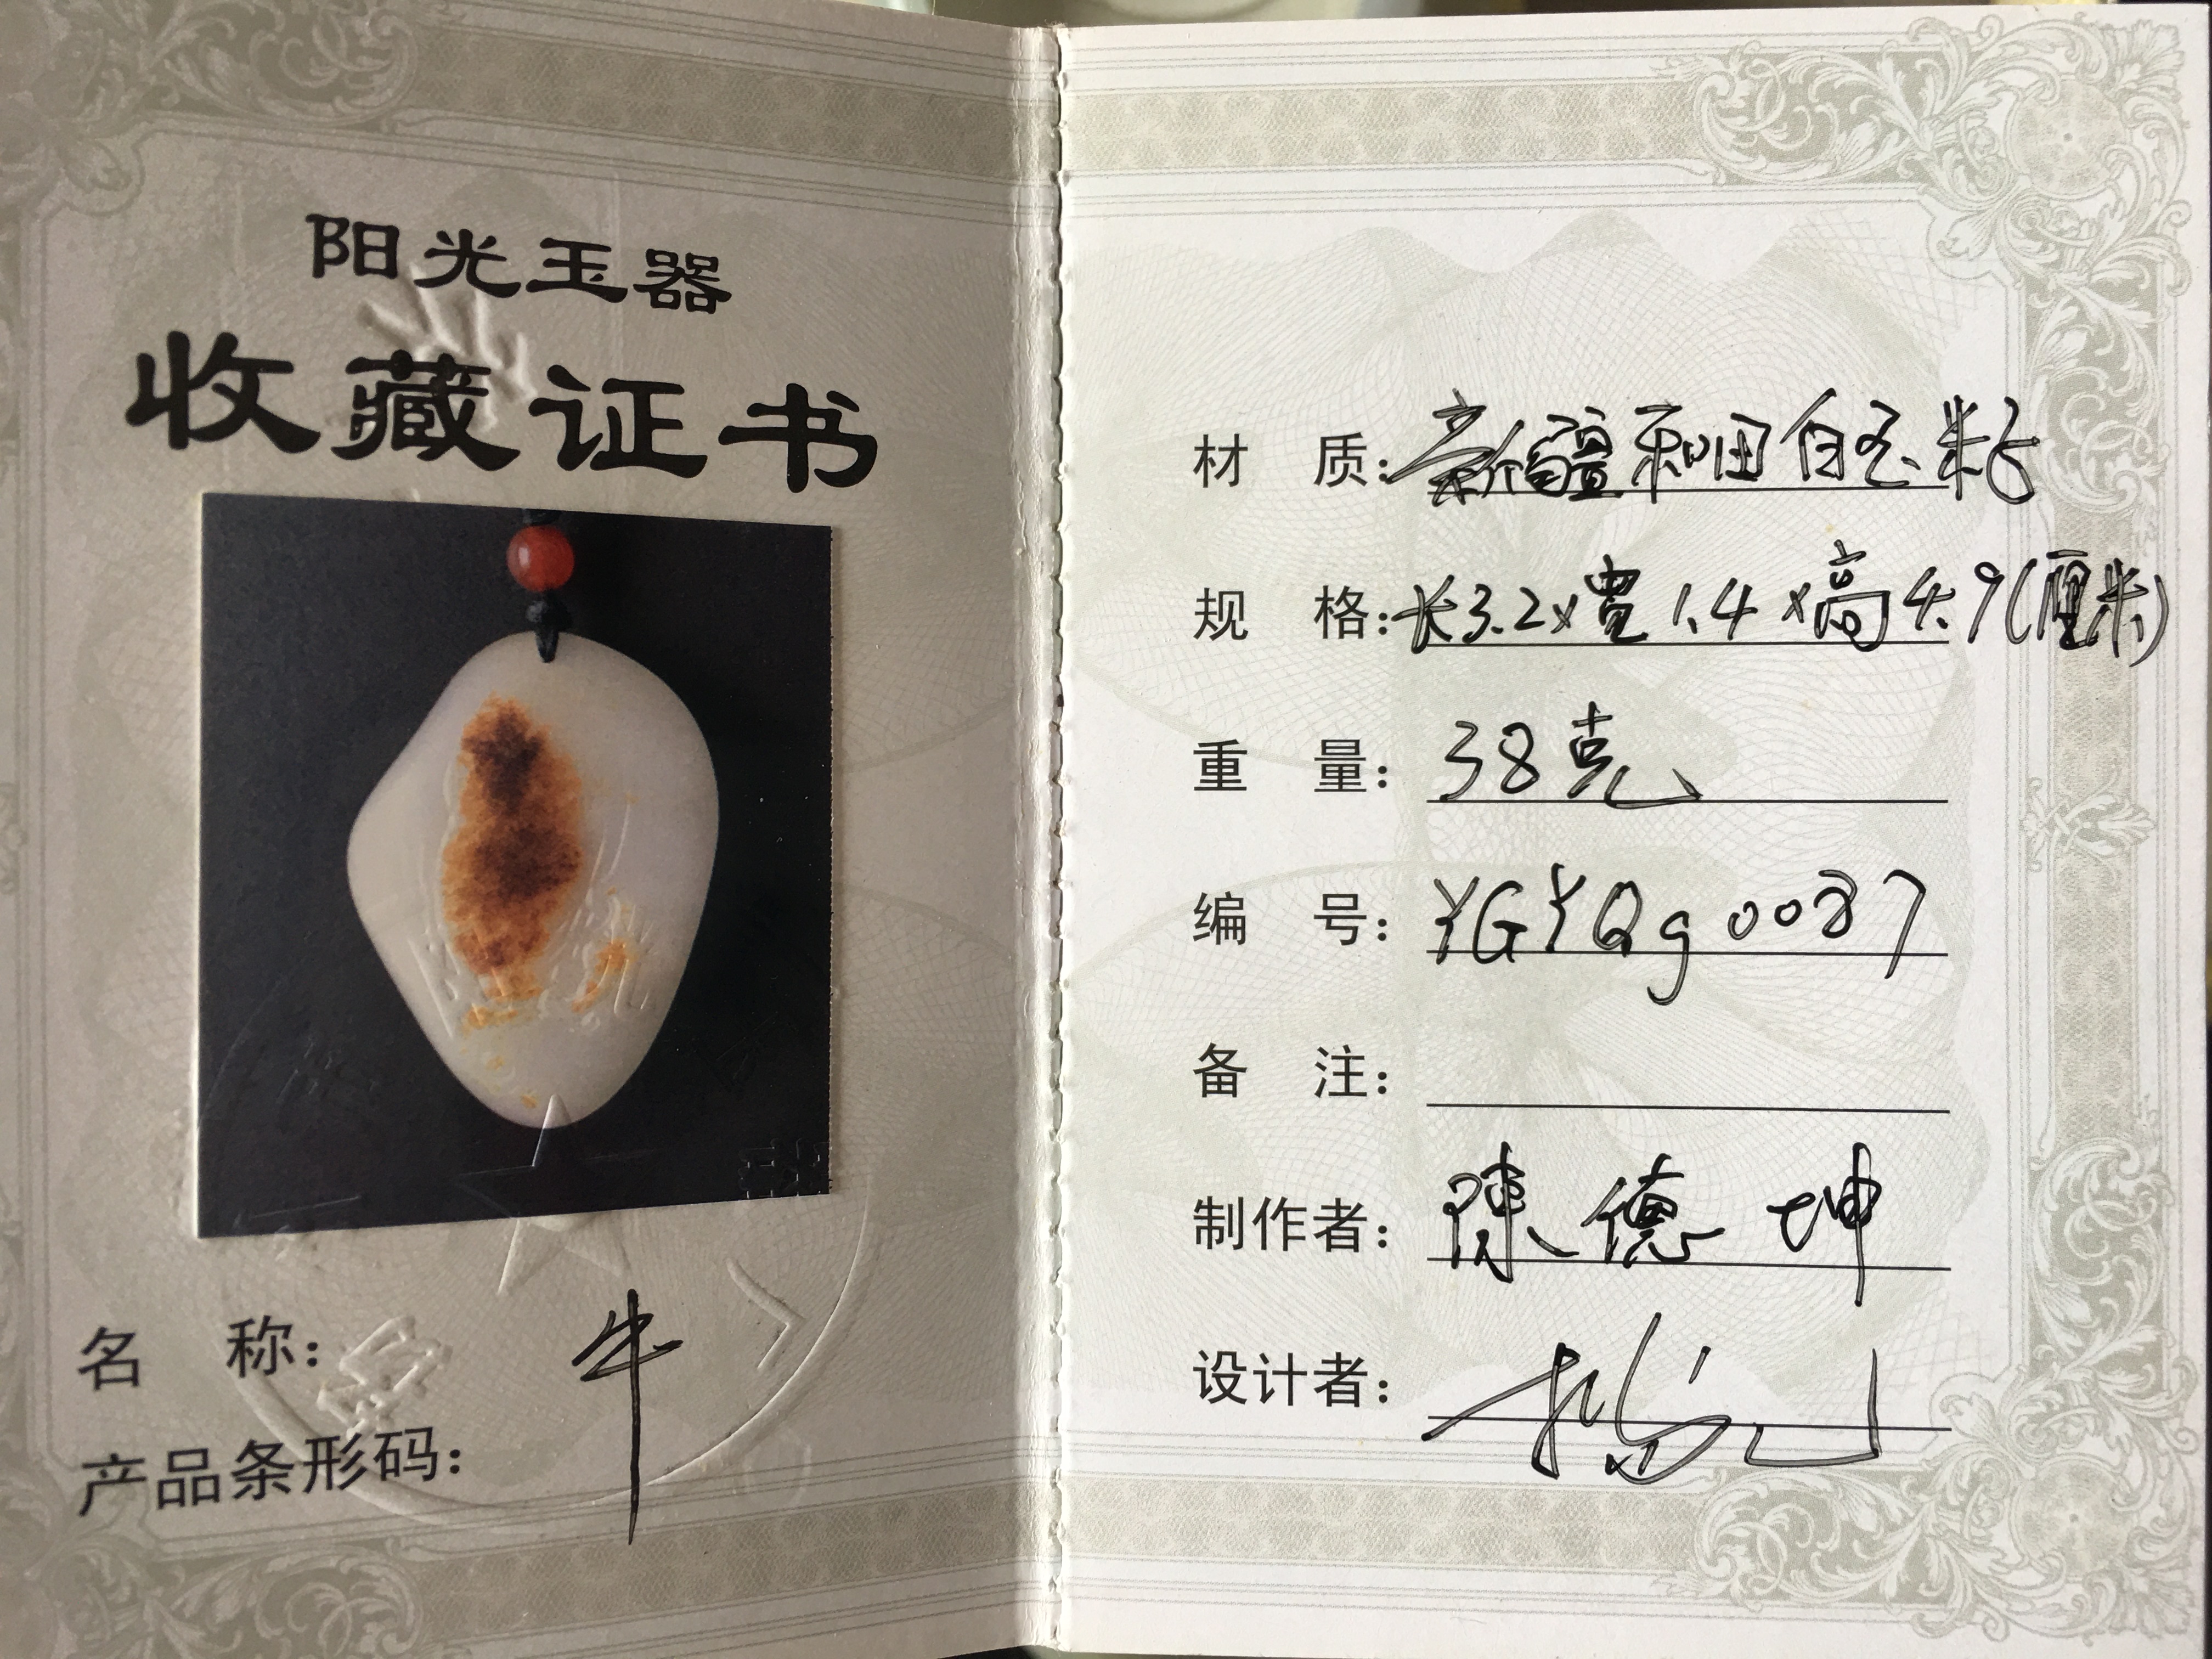 阳光玉器
收藏证书
名 称: 牛
产品条形码:
材 质: 新疆和田白玉籽
规 格: 长3.2x宽1.4x高4.9(厘米)
重 量: 38克
编 号: YGYQg0037
备 注:
制作者: 陳德坤
设计者: